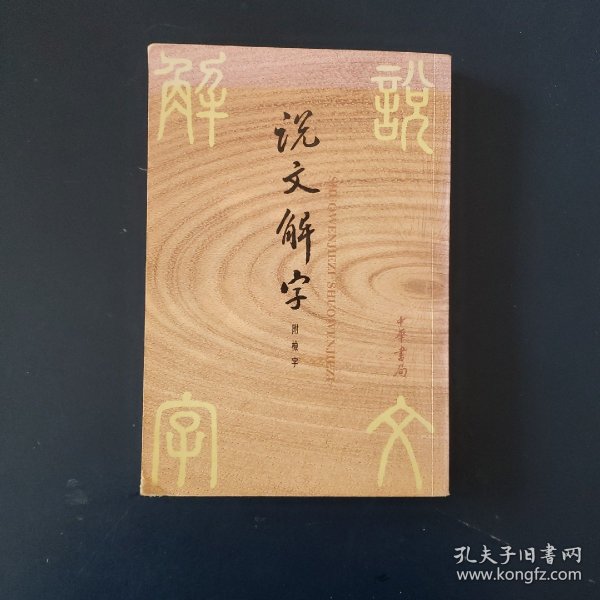 說文
解字
说文解字
附檢字
SHUOWENJIEZI SHUOWENJIEZI
中華書局
孔夫子旧書网
www.kongfz.com